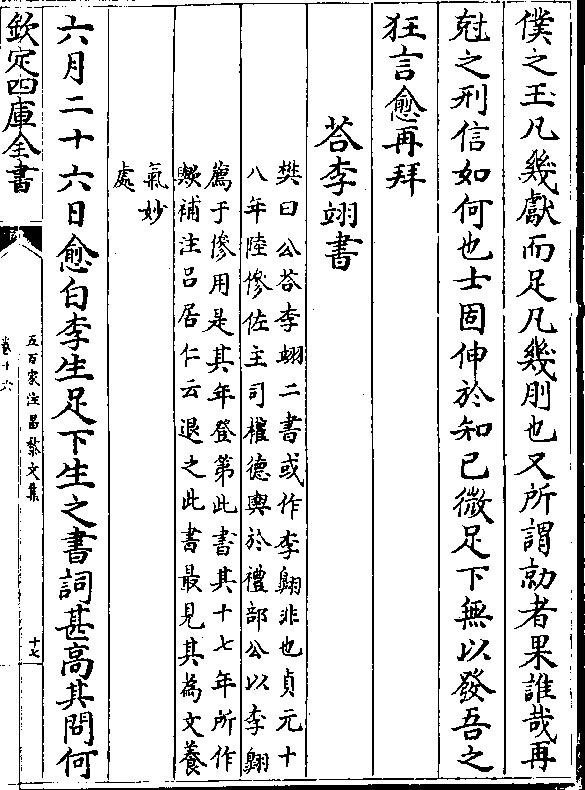 僕之玉凡幾獻而足凡幾刖也又所謂勍者果誰哉再
尅之刑信如何也士固伸於知已微足下無以發吾之
狂言愈再拜
荅李翊書
樊曰公荅李翊二書或作李翺非也貞元十
八年陸傪佐主司權德輿於禮部公以李翺
薦于傪用是其年登第此書其十七年所作
歟補注吕居仁云退之此書最見其為文養
氣妙
處
六月二十六日愈白李生足下生之書詞甚高其問何
欽定四庫全書
五百家注昌黎文集
卷十六
十七